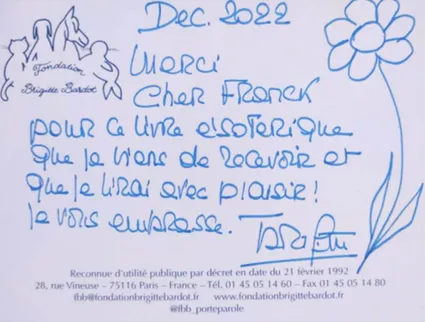 Dec. 2022
Fondation
Brigitte Bardot
Merci
Cher Franck
pour ce livre ésoterique
que je viens de recevoir et
que je lirai avec plaisir !
je vous embrasse.
Reconnue d'utilité publique par décret en date du 21 février 1992
28, rue Vineuse – 75116 Paris – France – Tél. 01 45 05 14 60 – Fax 01 45 05 14 80
fbb@fondationbrigittebardot.fr www.fondationbrigittebardot.fr
@fbb_porteparole